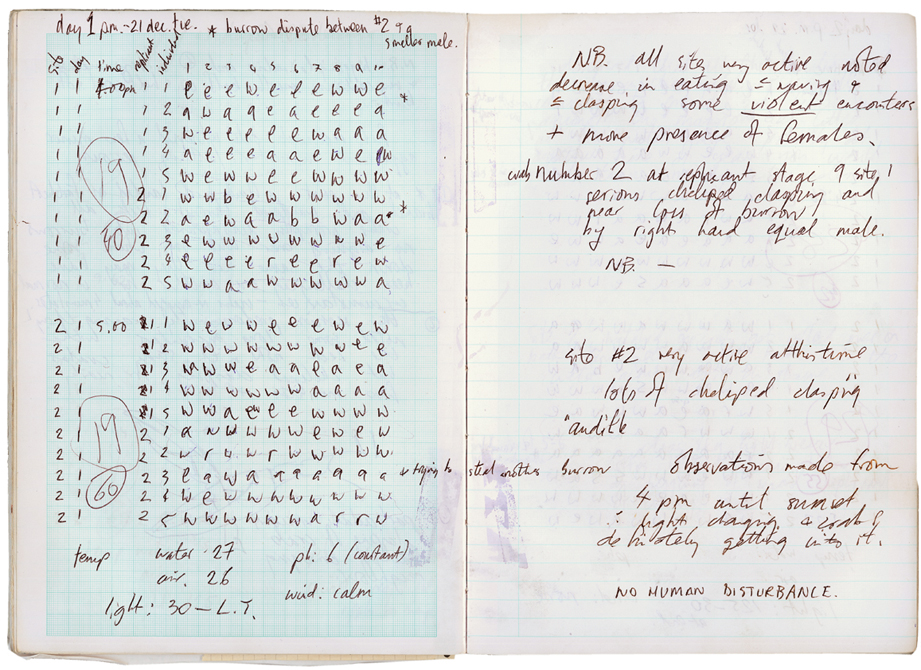 day 1 pm. - 21 dec. tue. * burrow dispute between #2 & a
smaller male.
site day time replicant individual 1 2 3 4 5 6 7 8 9 10
1 1 4:00pm 1 1 e e e w e e e w w e
1 1 1 2 a w a a e a e e e a *
1 1 1 3 w e e e e e w a a a
1 1 1 4 a e e e a a e w e w
1 1 1 5 w e w w e e w w w w
1 1 2 1 w w b e w w w w w w
1 1 2 2 a e w a a b b w a a *
1 1 2 3 e w w w w w w w w e
1 1 2 4 e e e e r e e r e w
1 1 2 5 w w a a w w w w w a
19
40
2 1 5.00 1 1 w e w w e e e w e w
2 1 1 2 w w w w w w w w e e
2 1 1 3 w w w e a a e a e a
2 1 1 4 w w w w w w a a a a
2 1 1 5 w w a e e e w w w w
2 1 2 1 a w w w w w e w e w
2 1 2 w r w w r w w w w w
2 1 2 3 e a w a a a a a a a trying to steal another burrow
2 1 2 3 w e w w w w w w w w
2 1 2 5 w w w w w a r r w
19
60
temp water. 27 ph: 6 (constant)
air. 26 wind: calm
light: 30 - L.T.
NB. all sites very active noted
decrease in eating waving &
clasping some violent encounters
+ more presence of females.
crab number 2 at replicant stage 9 site 1
serious cheliped clasping and
near loss of burrow
by right hand equal male.
NB. —
site #2 very active at this time
lots of cheliped clasping
"audible"
observations made from
4 pm until sunset
∴ light changing & crabs
definately getting into it.
NO HUMAN DISTURBANCE.